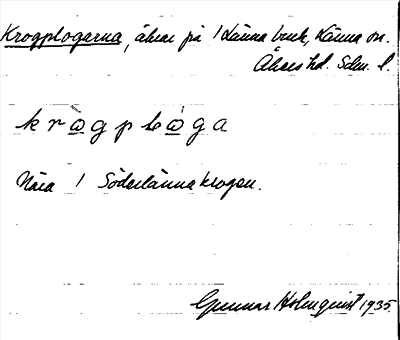 Krogplogarna, åkrar på 1 Länna bruk, Länna sn.
Åkers hd. Sdm. l.
kràgplòga
Nära 1 Söderlännakrogen.
Gunnar Holmquist 1935.